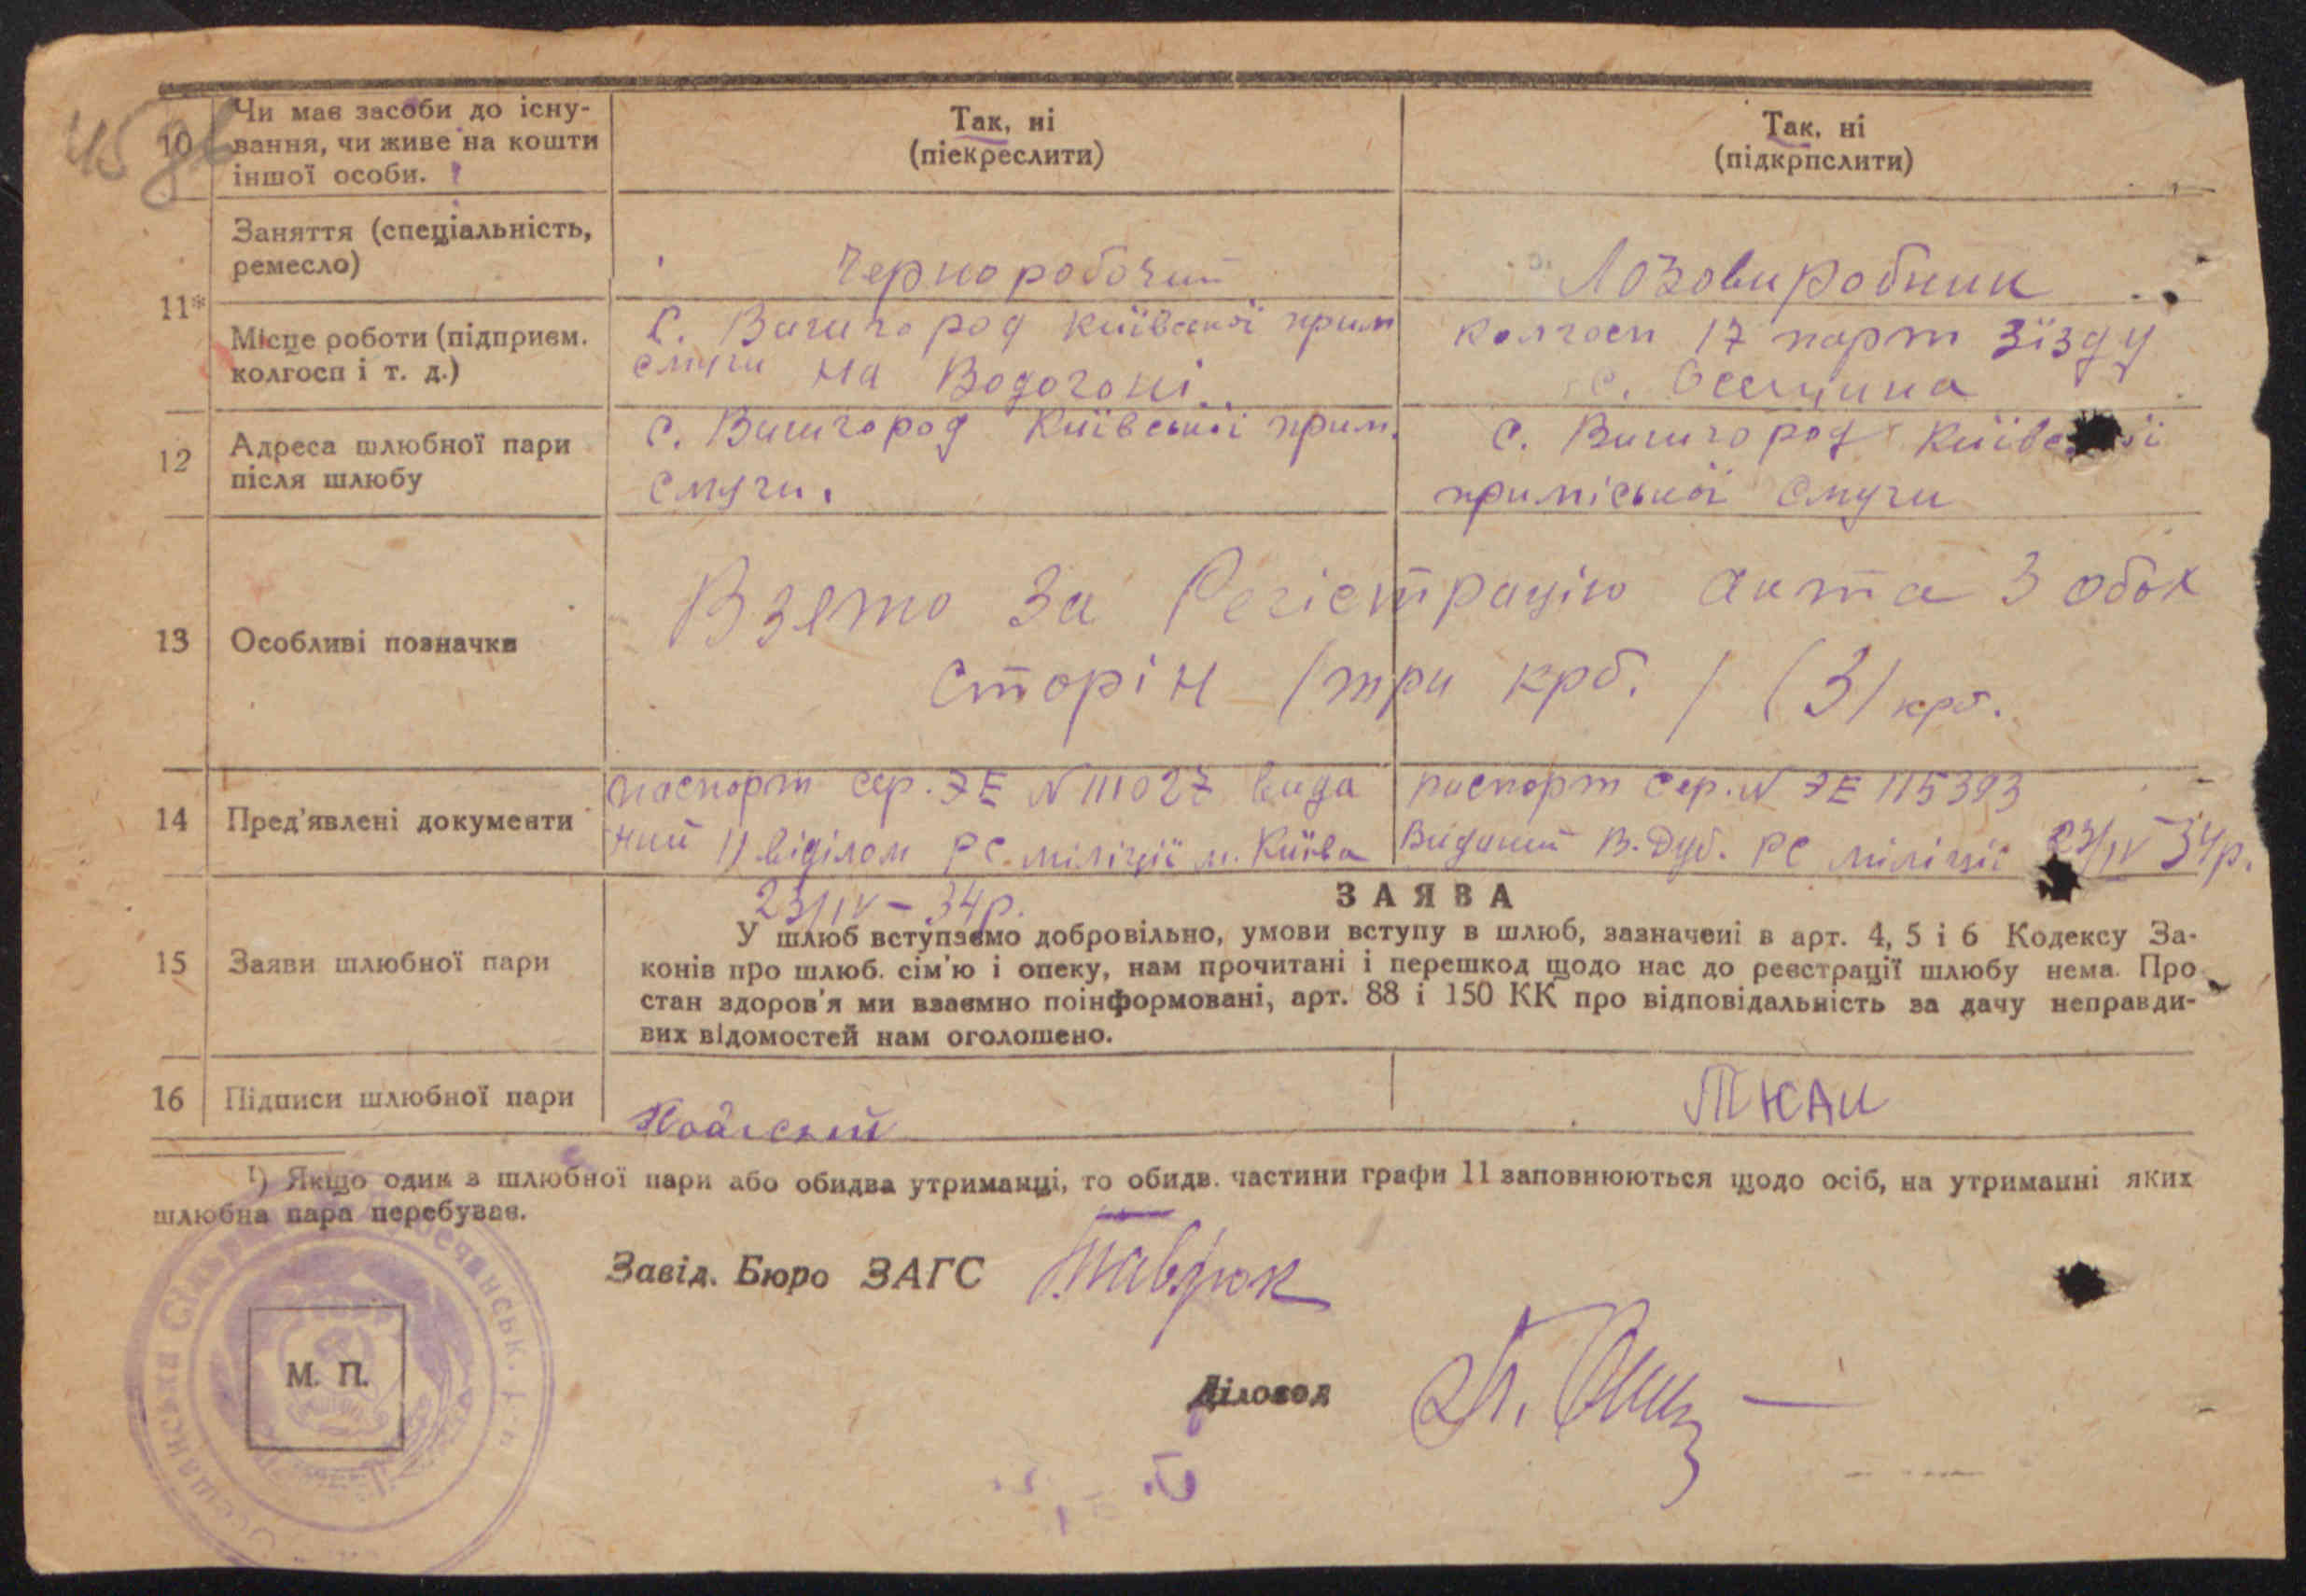 45
10 Чи має засоби до існу-
вання, чи живе на кошти
іншої особи.
Так, ні
(піекреслити)
Так, ні
(підкрпслити)
11*
Заняття (спеціальність,
ремесло)
Чернороборочий
Лозовиробник
Місце роботи (підприєм.
колгосп і т. д.)
С. Вишгород Київської прим
смуги на Водогоні.
Колгосп 17 парт зїзду
с. Осещина
12 Адреса шлюбної пари
після шлюбу
С. Вишгород Київської прим.
смуги.
С. Вишгород
приміської смуги
13 Особливі позначки
Взято за Регістрацію акта з обох
сторін /три крб. / (3/ крб.
14 Пред'явлені документи
паспорт сер. ЭЕ N 111027 вида
ний 11 віділом РС міліції м. Київа
23/IV – 34р.
паспорт сер. N ЭЕ 115393
Виданий В. Дуб. РС міліції 23/IV 34р.
15 Заяви шлюбної пари
ЗАЯВА
У шлюб вступаємо добровільно, умови вступу в шлюб, зазначені в арт. 4, 5 і 6 Кодексу За-
конів про шлюб. сім'ю і опеку, нам прочитані і перешкод щодо нас до реєстрації шлюбу нема. Про
стан здоров'я ми взаємно поінформовані, арт. 88 і 150 КК про відповідальність за дачу неправди-
вих відомостей нам оголошено.
16 Підписи шлюбної пари
¹) Якщо один з шлюбної пари або обидва утриманці, то обидв. частини графи 11 заповнюються щодо осіб, на утриманні яких
шлюбна пара перебуває.
Завід. Бюро ЗАГС
М. П.
Діловод